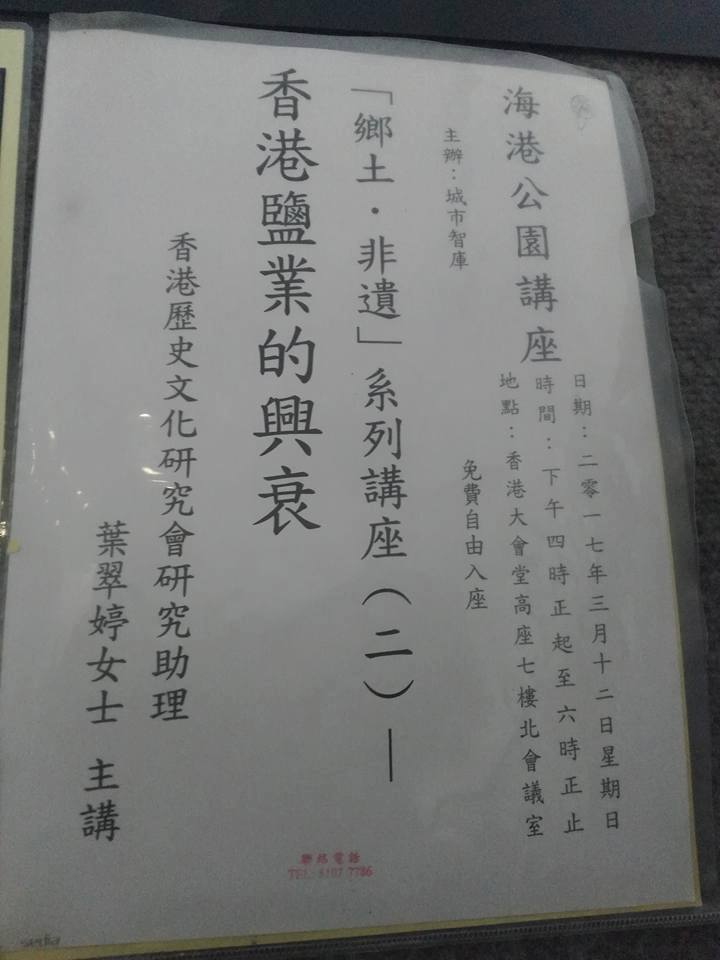 海港公園講座
日期：二零一七年三月十二日星期日
時間：下午四時正起至六時正止
地點：香港大會堂高座七樓北會議室
主辦：城市智庫
免費自由入座
「鄉土．非遺」系列講座（二）—
香港鹽業的興衰
香港歷史文化研究會研究助理
葉翠婷女士 主講
聯絡電話
TEL: 7786